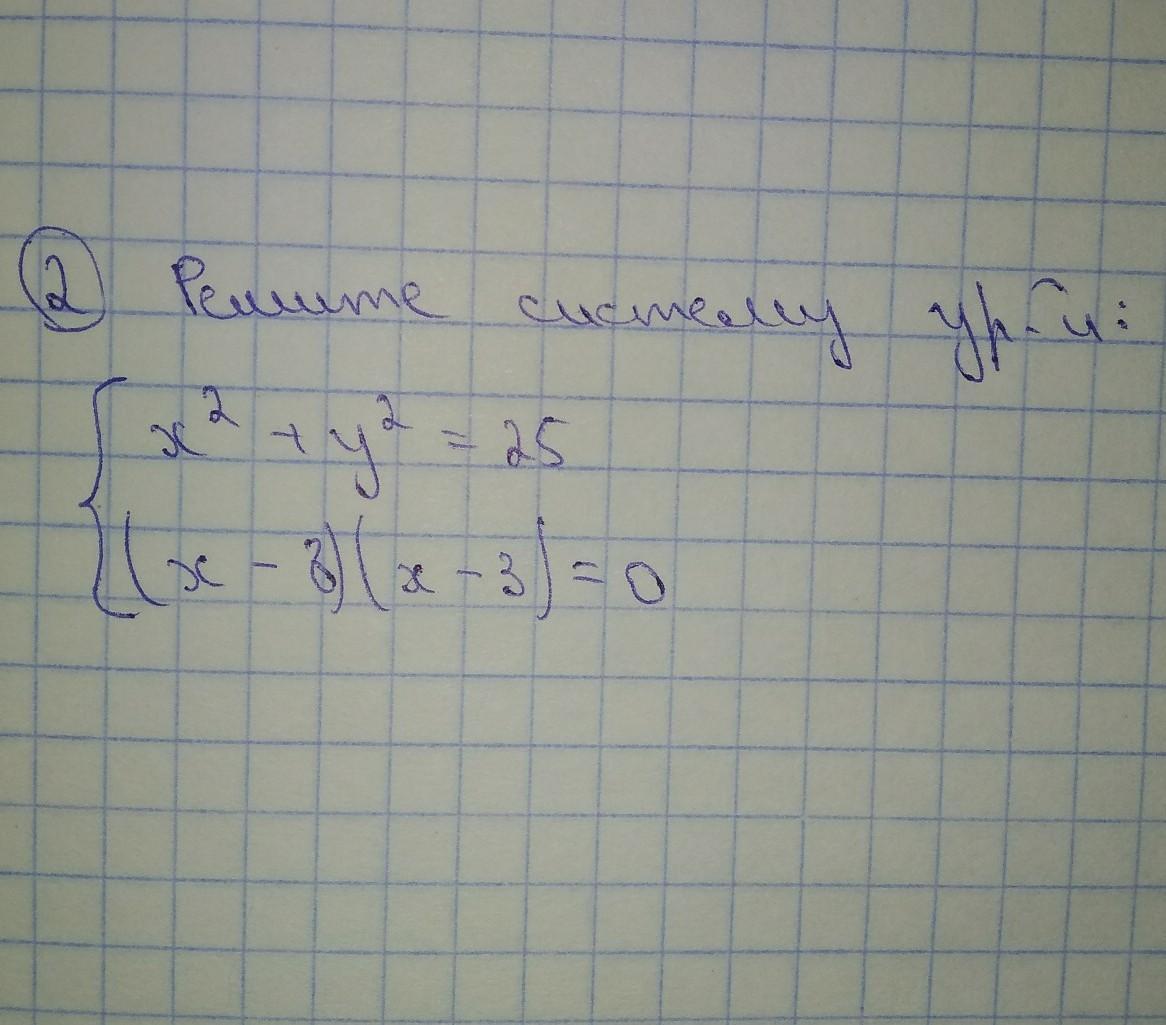 2 Решите систему ур-й:
x² + y² = 25
(x - 3)(x - 3) = 0